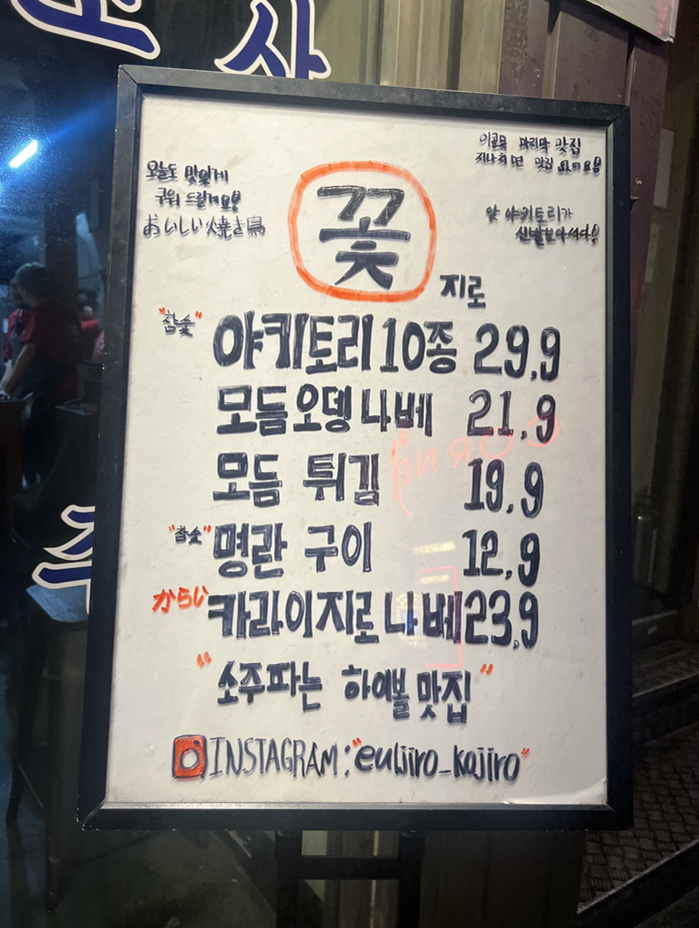 오늘도 맛있게
구워 드릴게요!
おいしい焼き鳥
이골목 마지막 맛집
지나치면 맛집
앗 야키토리가
꽃
지로
"참숯"
야키토리 10종 29,9
모듬오뎅나베 21,9
모듬 튀김 19,9
"참숯"
명란 구이 12,9
からい
카라이지로나베 23,9
"소주파는 하이볼 맛집"
INSTAGRAM:"euljiro_kojiro"